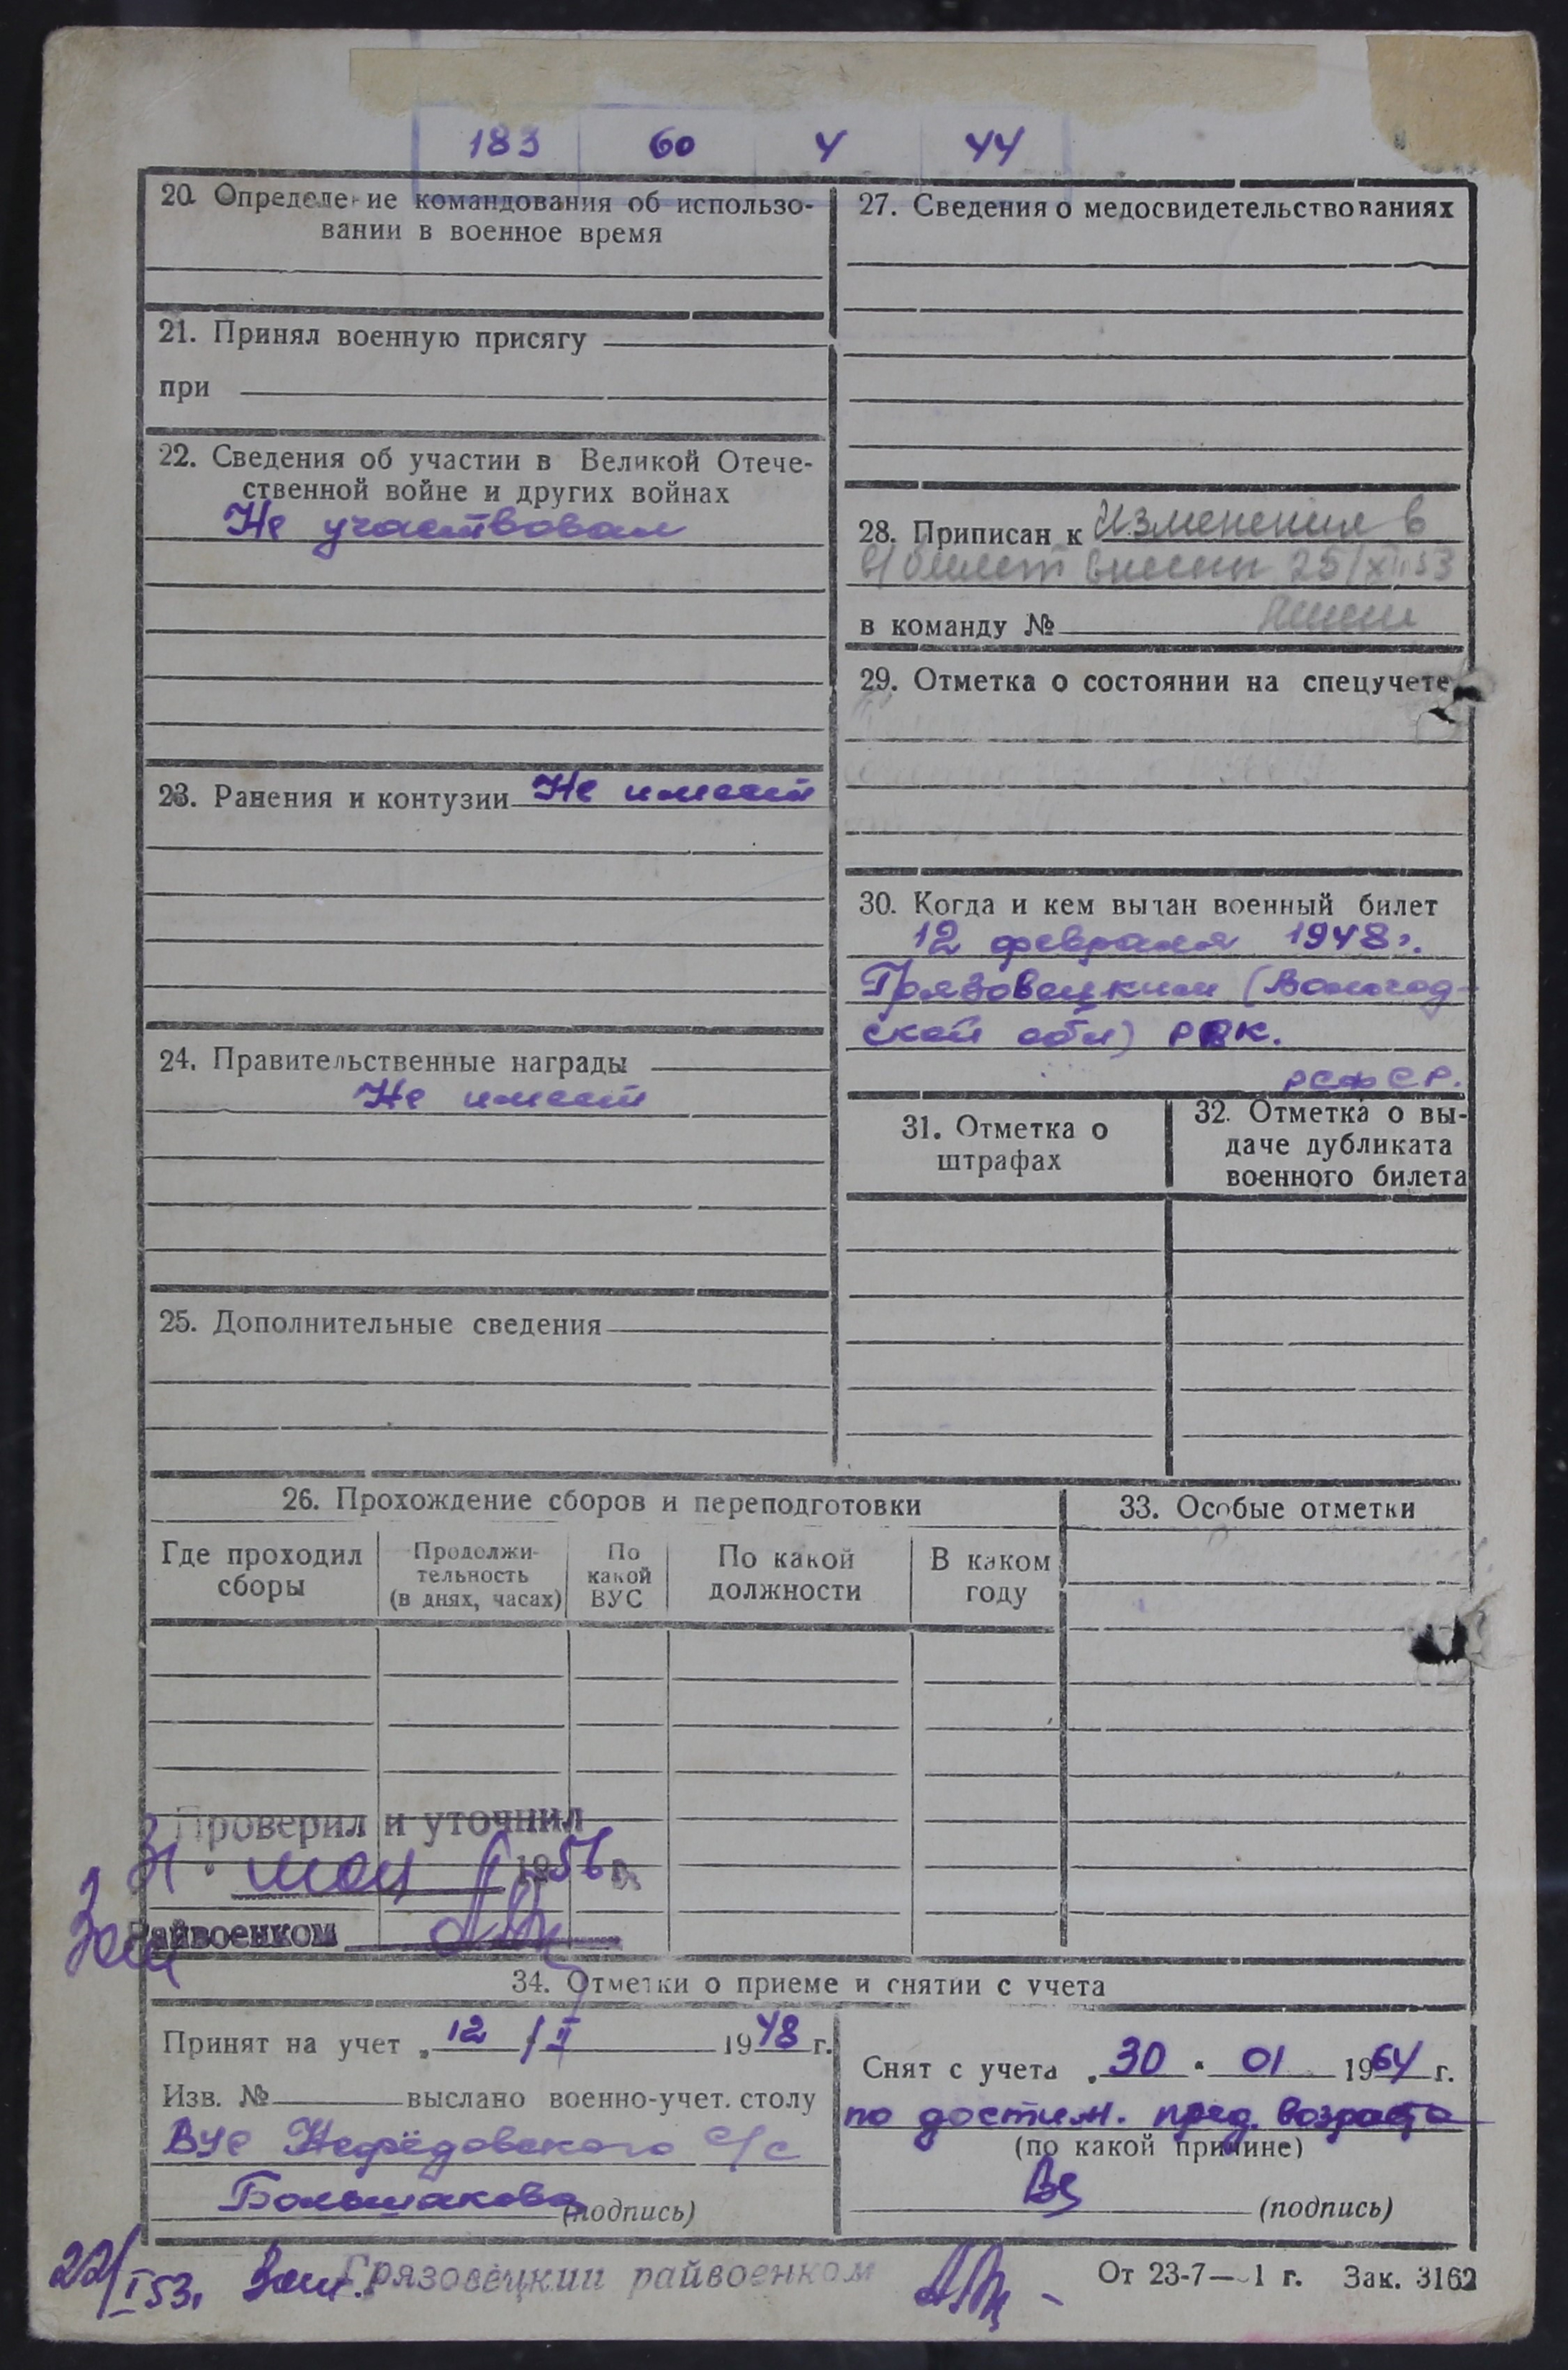 183 60 4 44
20. Определение командования об использо-
вании в военное время
21. Принял военную присягу
при
22. Сведения об участии в Великой Отече-
ственной войне и других войнах
Не участвовал
23. Ранения и контузии Не имеет
24. Правительственные награды
Не имеет
25. Дополнительные сведения
27. Сведения о медосвидетельствованиях
28. Приписан к Изменения в
в/билет внесен 25/XII.53
в команду №
29. Отметка о состоянии на спецучете
30. Когда и кем выдан военный билет
12 февраля 1948 г.
Грязовецким (Вологод-
ской обл) РВК.
РСФСР.
31. Отметка о
штрафах
32. Отметка о вы-
даче дубликата
военного билета
26. Прохождение сборов и переподготовки
Где проходил
сборы
Продолжи-
тельность
(в днях, часах)
По
какой
ВУС
По какой
должности
В каком
году
33. Особые отметки
Проверил и уточнил
31 мая 1956 г.
Зам Райвоенком
34. Отметки о приеме и снятии с учета
Принят на учет „12 / II 1948 г.
Изв. № выслано военно-учет. столу
ВУС Нефёдовского с/с
Большакова
(подпись)
Снят с учета „30 " 01 1964 г.
по достиж. пред. возраста
(по какой причине)
(подпись)
22/I 53. Зам. Грязовецкий райвоенком
От 23-7— 1 г. Зак. 3162